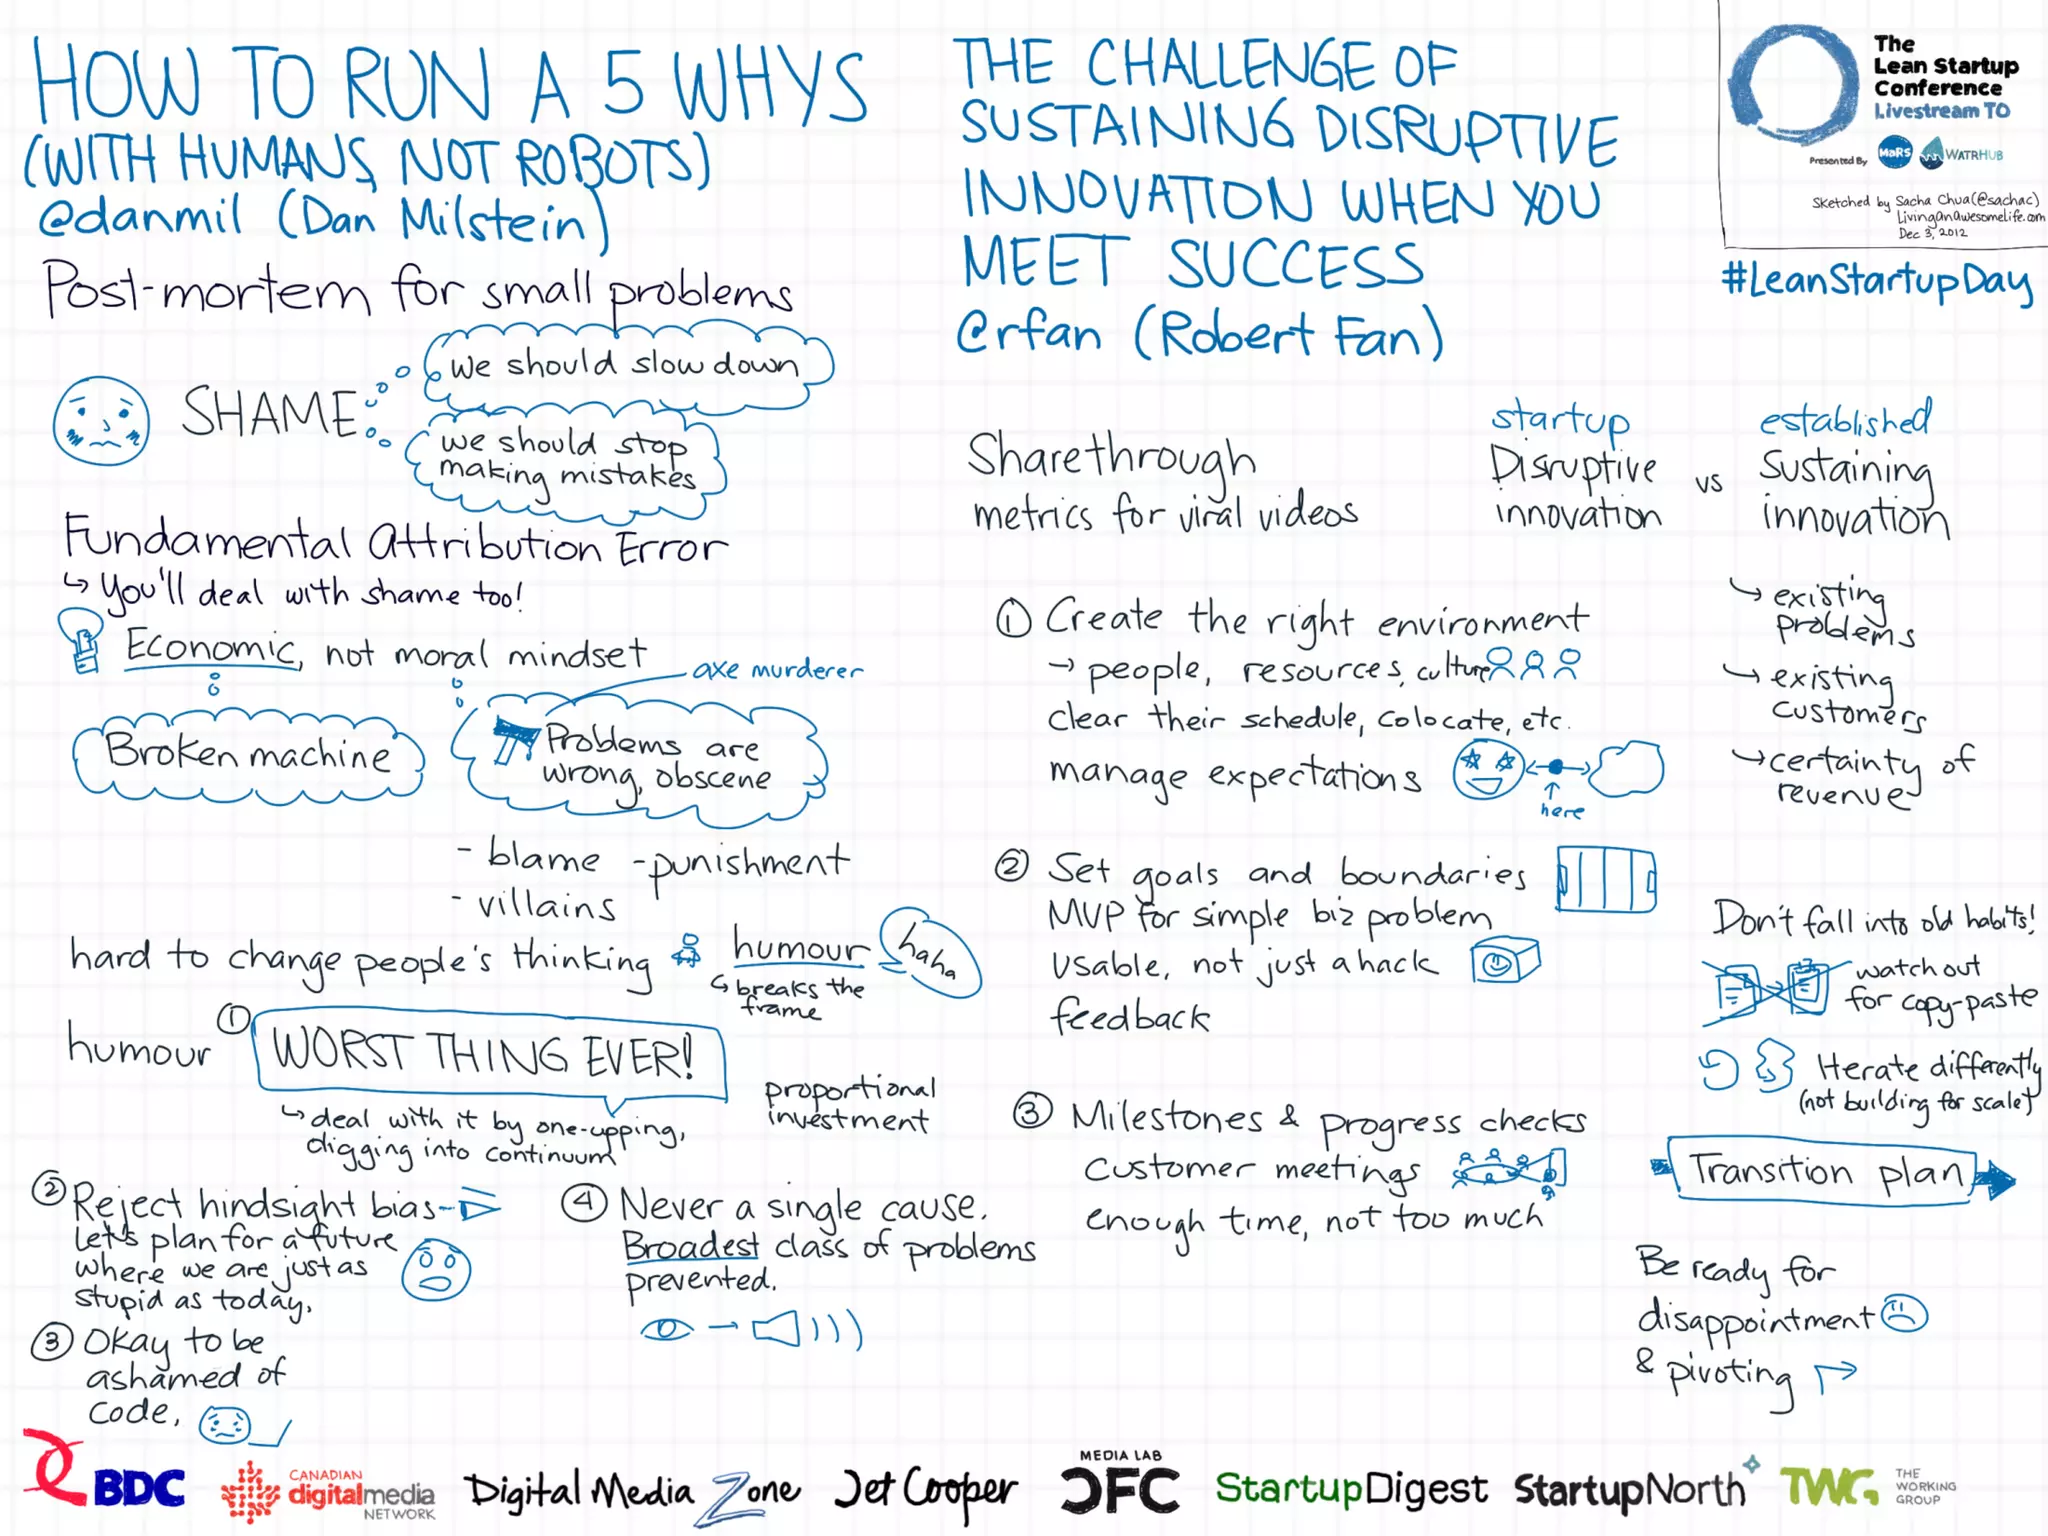 HOW TO RUN A 5 WHYS
(WITH HUMANS, NOT ROBOTS)
@danmil (Dan Milstein)
Post-mortem for small problems
SHAME
we should slow down
we should stop
making mistakes
Fundamental Attribution Error
↳ You'll deal with shame too!
Economic, not moral mindset
axe murderer
Broken machine
Problems are
wrong, obscene
- blame - punishment
- villains
hard to change people's thinking
humour
haha
↳ breaks the
frame
humour
① WORST THING EVER!
↳ deal with it by one-upping,
digging into continuum
proportional
investment
② Reject hindsight bias
Let's plan for a future
where we are just as
stupid as today.
③ Okay to be
ashamed of
code.
④ Never a single cause.
Broadest class of problems
prevented.
THE CHALLENGE OF
SUSTAINING DISRUPTIVE
INNOVATION WHEN YOU
MEET SUCCESS
@rfan (Robert Fan)
Sharethrough
metrics for viral videos
startup
Disruptive
innovation
vs
established
Sustaining
innovation
↳ existing
problems
↳ existing
customers
↳ certainty of
revenue
① Create the right environment
→ people, resources, culture
clear their schedule, colocate, etc.
manage expectations
here
② Set goals and boundaries
MVP for simple biz problem
Usable, not just a hack
feedback
③ Milestones & progress checks
customer meetings
enough time, not too much
Don't fall into old habits!
watch out
for copy-paste
Iterate differently
(not building for scale)
Transition plan
Be ready for
disappointment
& pivoting
The
Lean Startup
Conference
Livestream TO
Presented By MaRS WATRHUB
Sketched by Sacha Chua (@sachac)
LivingAnAwesomeLife.com
Dec 3, 2012
#LeanStartupDay
BDC
CANADIAN
digitalmedia
NETWORK
Digital Media Zone
Jet Cooper
MEDIA LAB
CFC
StartupDigest
StartupNorth
TWG
THE
WORKING
GROUP